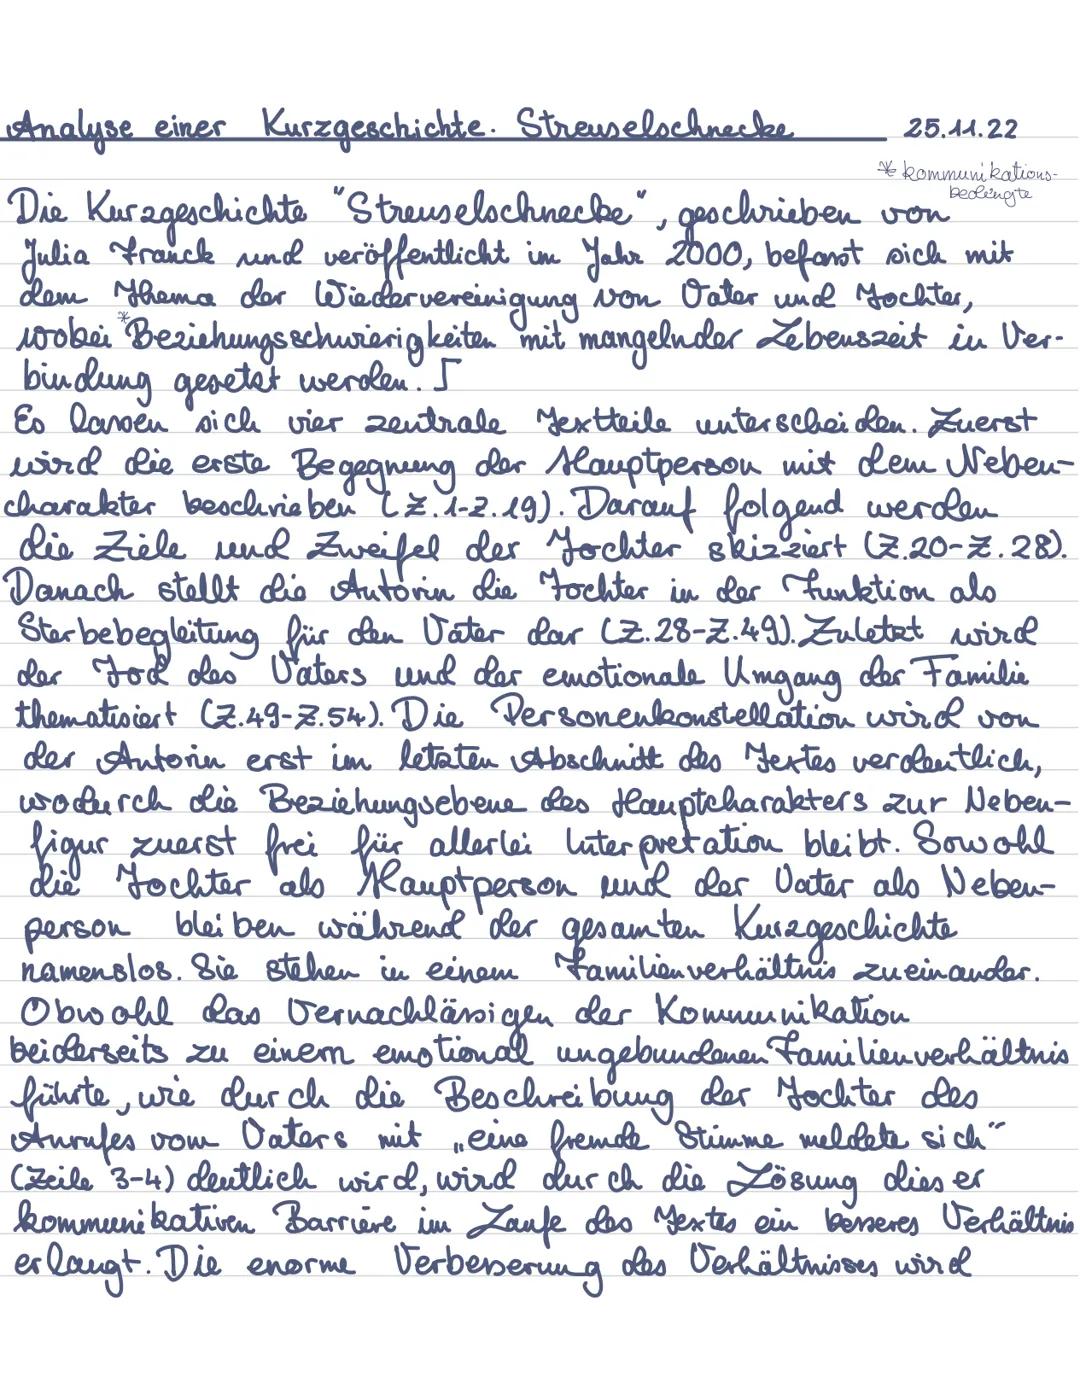 Analyse einer Kurzgeschichte. Streuselschnecke 25.11.22
* kommunikations-
bedingte
Die Kurzgeschichte "Streuselschnecke", geschrieben von
Julia Franck und veröffentlicht im Jahr 2000, befasst sich mit
dem Thema der Wiedervereinigung von Vater und Tochter,
wobei *Beziehungsschwierigkeiten mit mangelnder Lebenszeit in Ver-
bindung gesetzt werden. ʃ
Es lassen sich vier zentrale Textteile unterscheiden. Zuerst
wird die erste Begegnung der Hauptperson mit dem Neben-
charakter beschrieben (Z.1-Z.19). Darauf folgend werden
die Ziele und Zweifel der Tochter skizziert (Z.20-Z.28).
Danach stellt die Autorin die Tochter in der Funktion als
Sterbebegleitung für den Vater dar (Z.28-Z.49). Zuletzt wird
der Tod des Vaters und der emotionale Umgang der Familie
thematisiert (Z.49-Z.54). Die Personenkonstellation wird von
der Autorin erst im letzten Abschnitt des Textes verdeutlich,
wodurch die Beziehungsebene des Hauptcharakters zur Neben-
figur zuerst frei für allerlei Interpretation bleibt. Sowohl
die Tochter als Hauptperson und der Vater als Neben-
person bleiben während der gesamten Kurzgeschichte
namenslos. Sie stehen in einem Familienverhältnis zueinander.
Obwohl das Vernachlässigen der Kommunikation
beiderseits zu einem emotional ungebundenen Familienverhältnis
führte, wie durch die Beschreibung der Tochter des
Anrufes vom Vaters mit „eine fremde Stimme meldete sich“
(Zeile 3-4) deutlich wird, wird durch die Lösung dieser
kommunikativen Barriere im Laufe des Textes ein besseres Verhältnis
erlangt. Die enorme Verbesserung des Verhältnisses wird